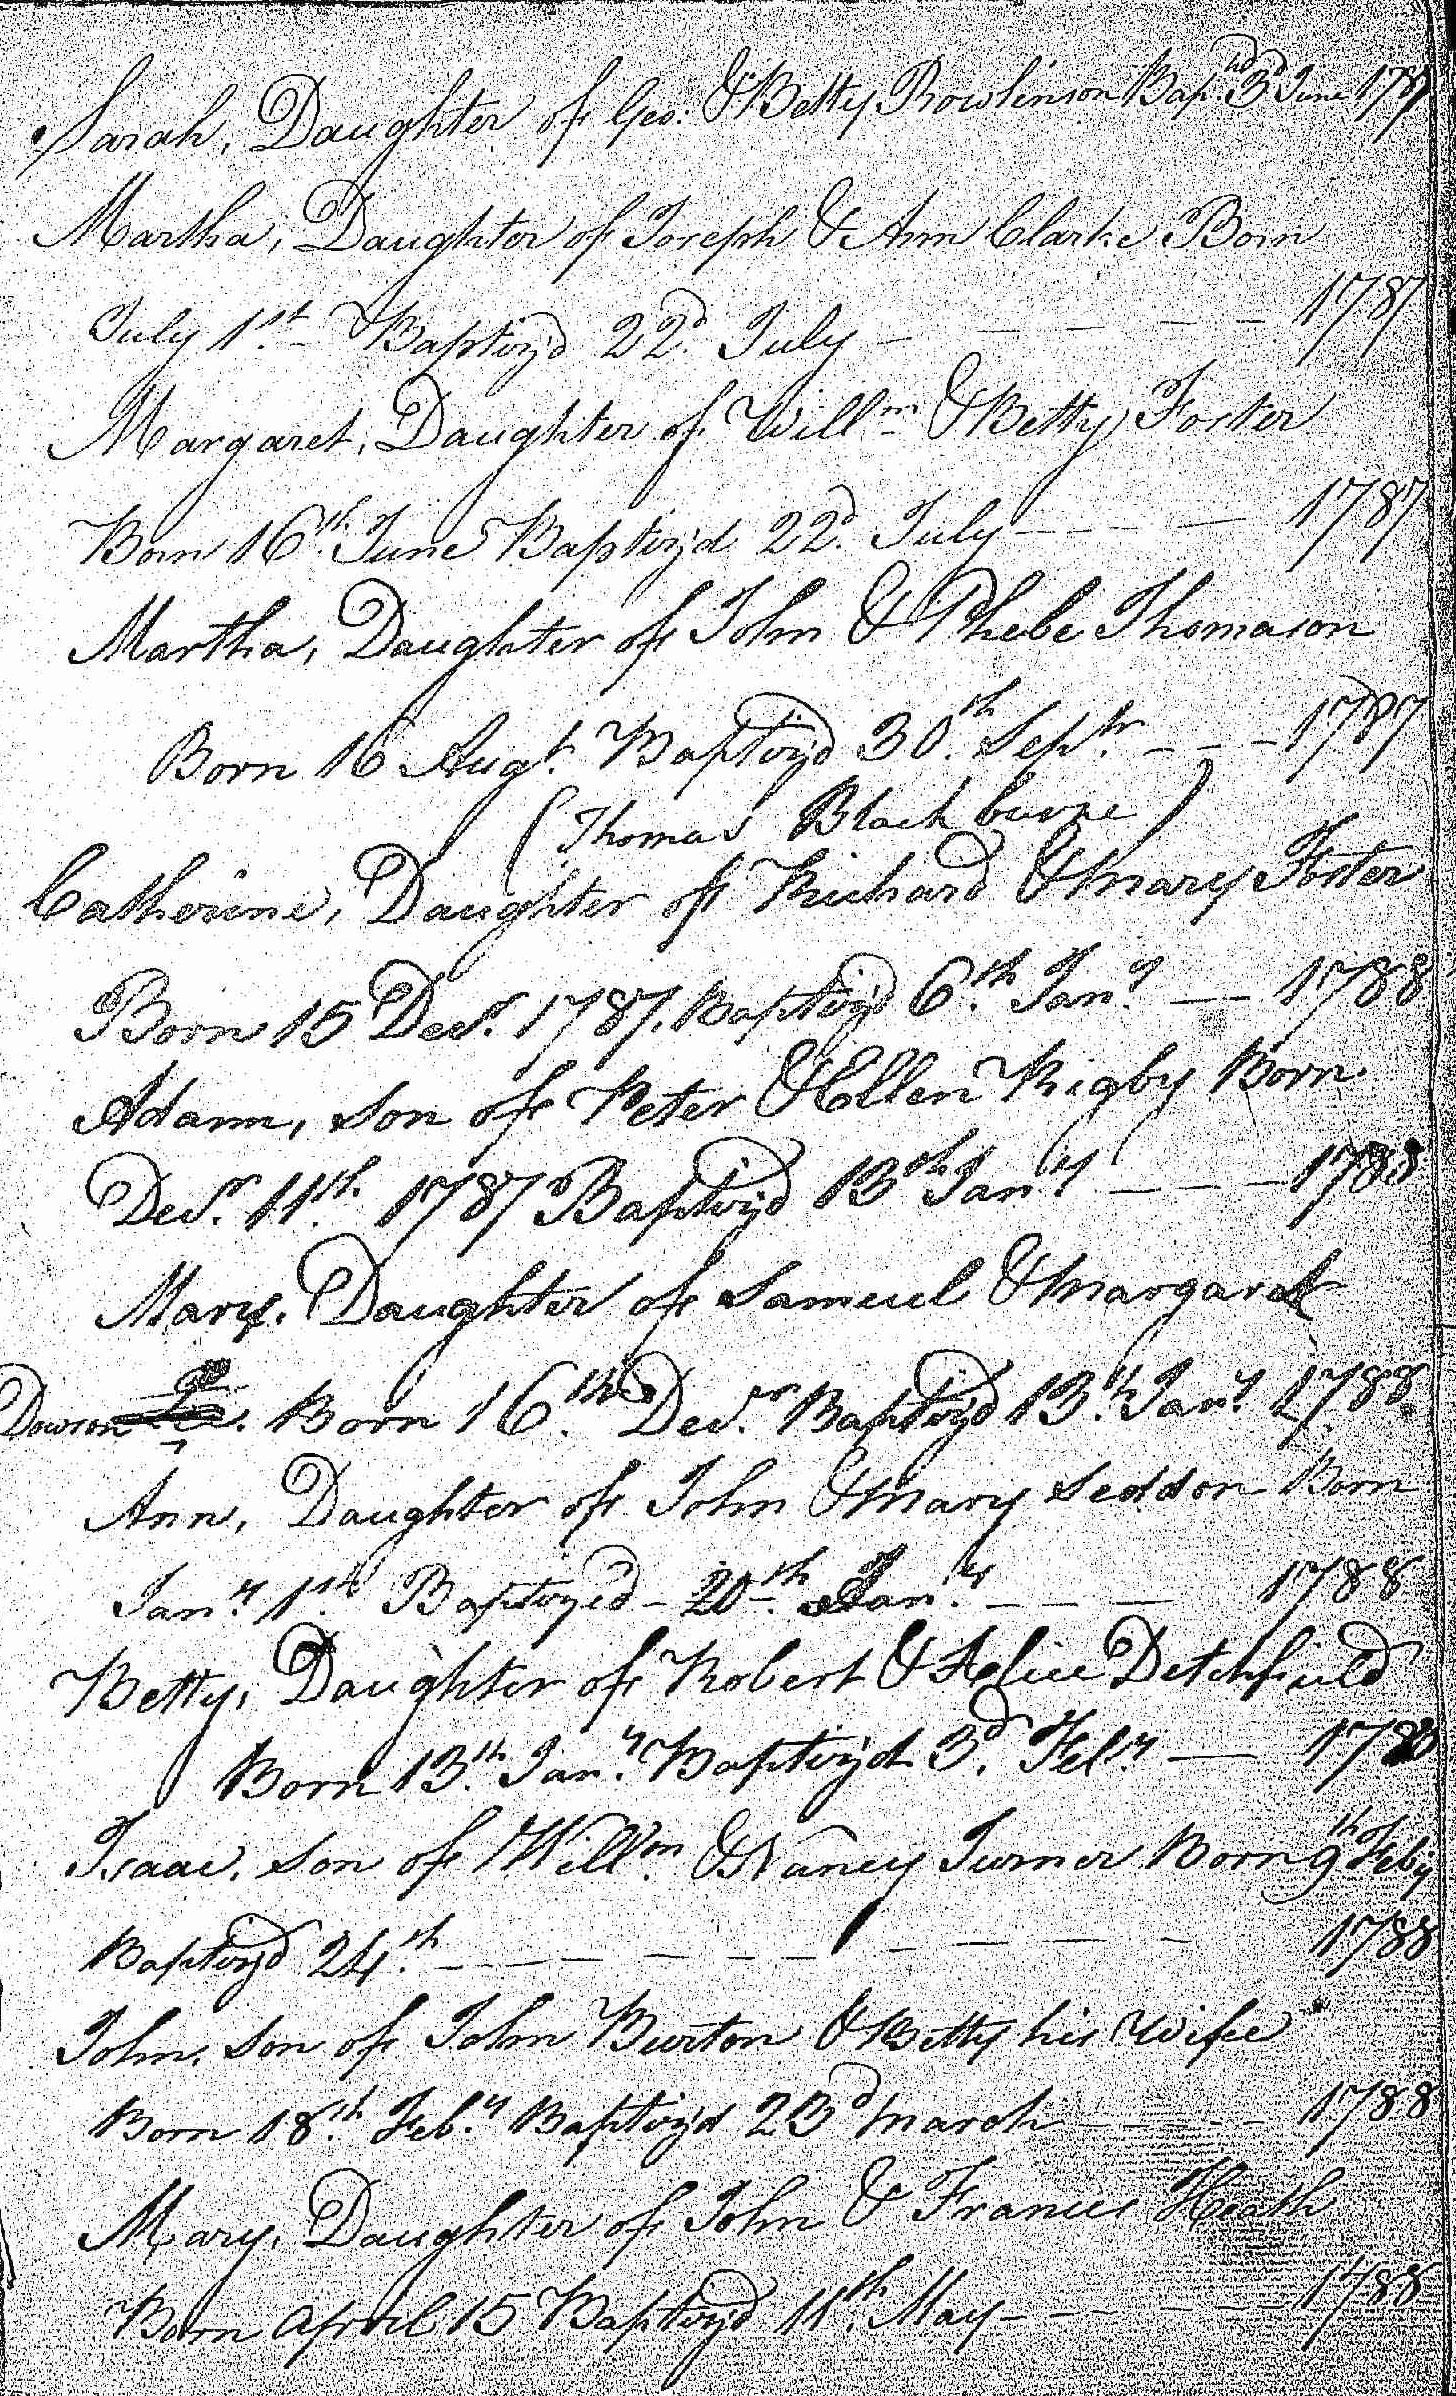 Sarah, Daughter of Geo: & Betty Rowlinson Bapd 3d June 1787
Martha, Daughter of Joseph & Ann Clarke Born
July 1st Baptiz'd 22d July - - - - - 1787
Margaret, Daughter of Willm & Betty Foster
Born 16th June Baptiz'd 22d July - - - - 1787
Martha, Daughter of John & Phebe Thomason
Born 16 Augt. Baptiz'd 30th Sepr. - - - 1787
(Thomas Blackburne)
Catherine, Daughter of Richard & Mary Foster
Born 15 Decr. 1787. Baptiz'd 6th Jany. - - 1788
Adam, son of Peter & Ellen Rigby Born
Decr. 11th. 1787 Baptiz'd 13th Jany - - - 1788
Mary. Daughter of Samuel & Margaret
Dowson. Born 16th. Decr. Baptiz'd 13th Jany. 1788.
Ann, Daughter of John & Mary Seddon Born
Jany. 1st. Baptiz'd - 20th. Jany. - - - 1788
Betty, Daughter of Robert & Alice Detchfield
Born 13th. Jany. Baptiz'd 3d. Feby. -
Isaac, son of Willm. & Nancy Turner Born 9th of Feby
Baptiz'd 24th. - - - - - - - - - 1788
John, son of John Burton & Betty his Wife
Born 18th. Feby. Baptiz'd 23d March - - - - 1788
Mary, Daughter of John & Frances Heath
Born April 15 Baptiz'd 11th. May - - - - - 1788